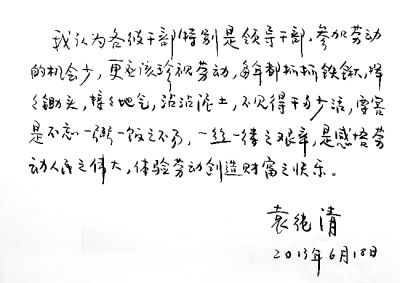 我认为各级干部特别是领导干部，参加劳动
的机会少，更应该珍视劳动，每年都抓抓铁锹，挥
挥锄头，接接地气，沾沾泥土，不见得干多少活，要害
是不忘一粥一饭之不易，一丝一缕之艰辛，是感悟劳
动人民之伟大，体验劳动创造财富之快乐。
袁纯清
2013年6月18日